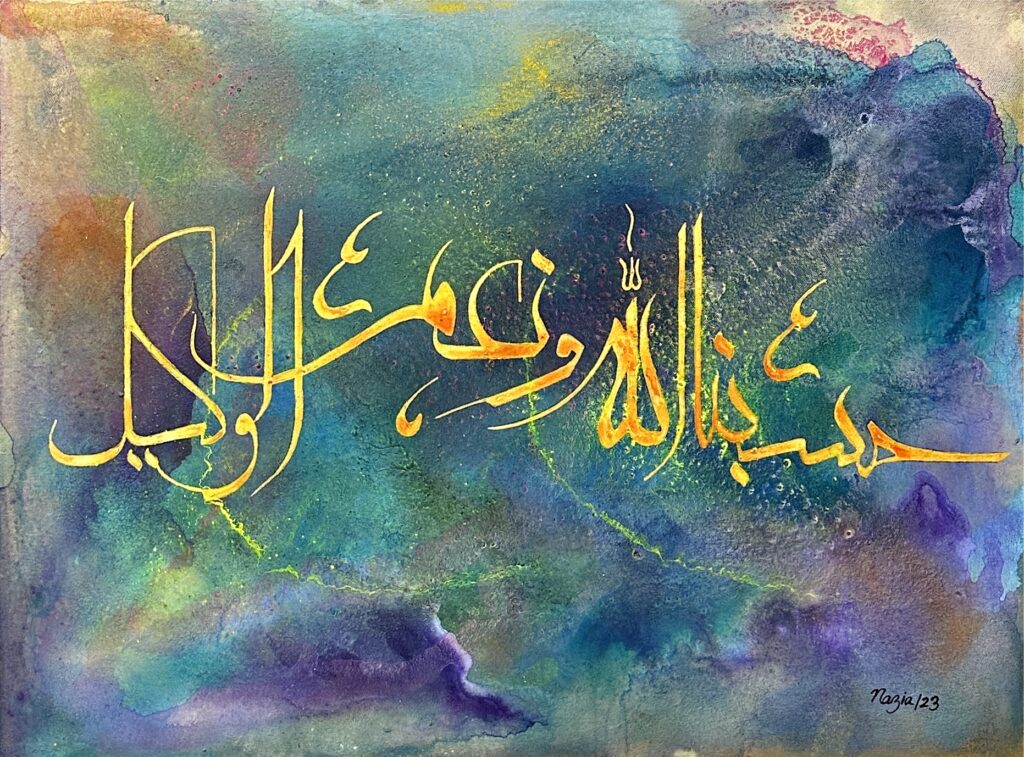 حسبنا الله ونعم الوكيل
Nazia/23